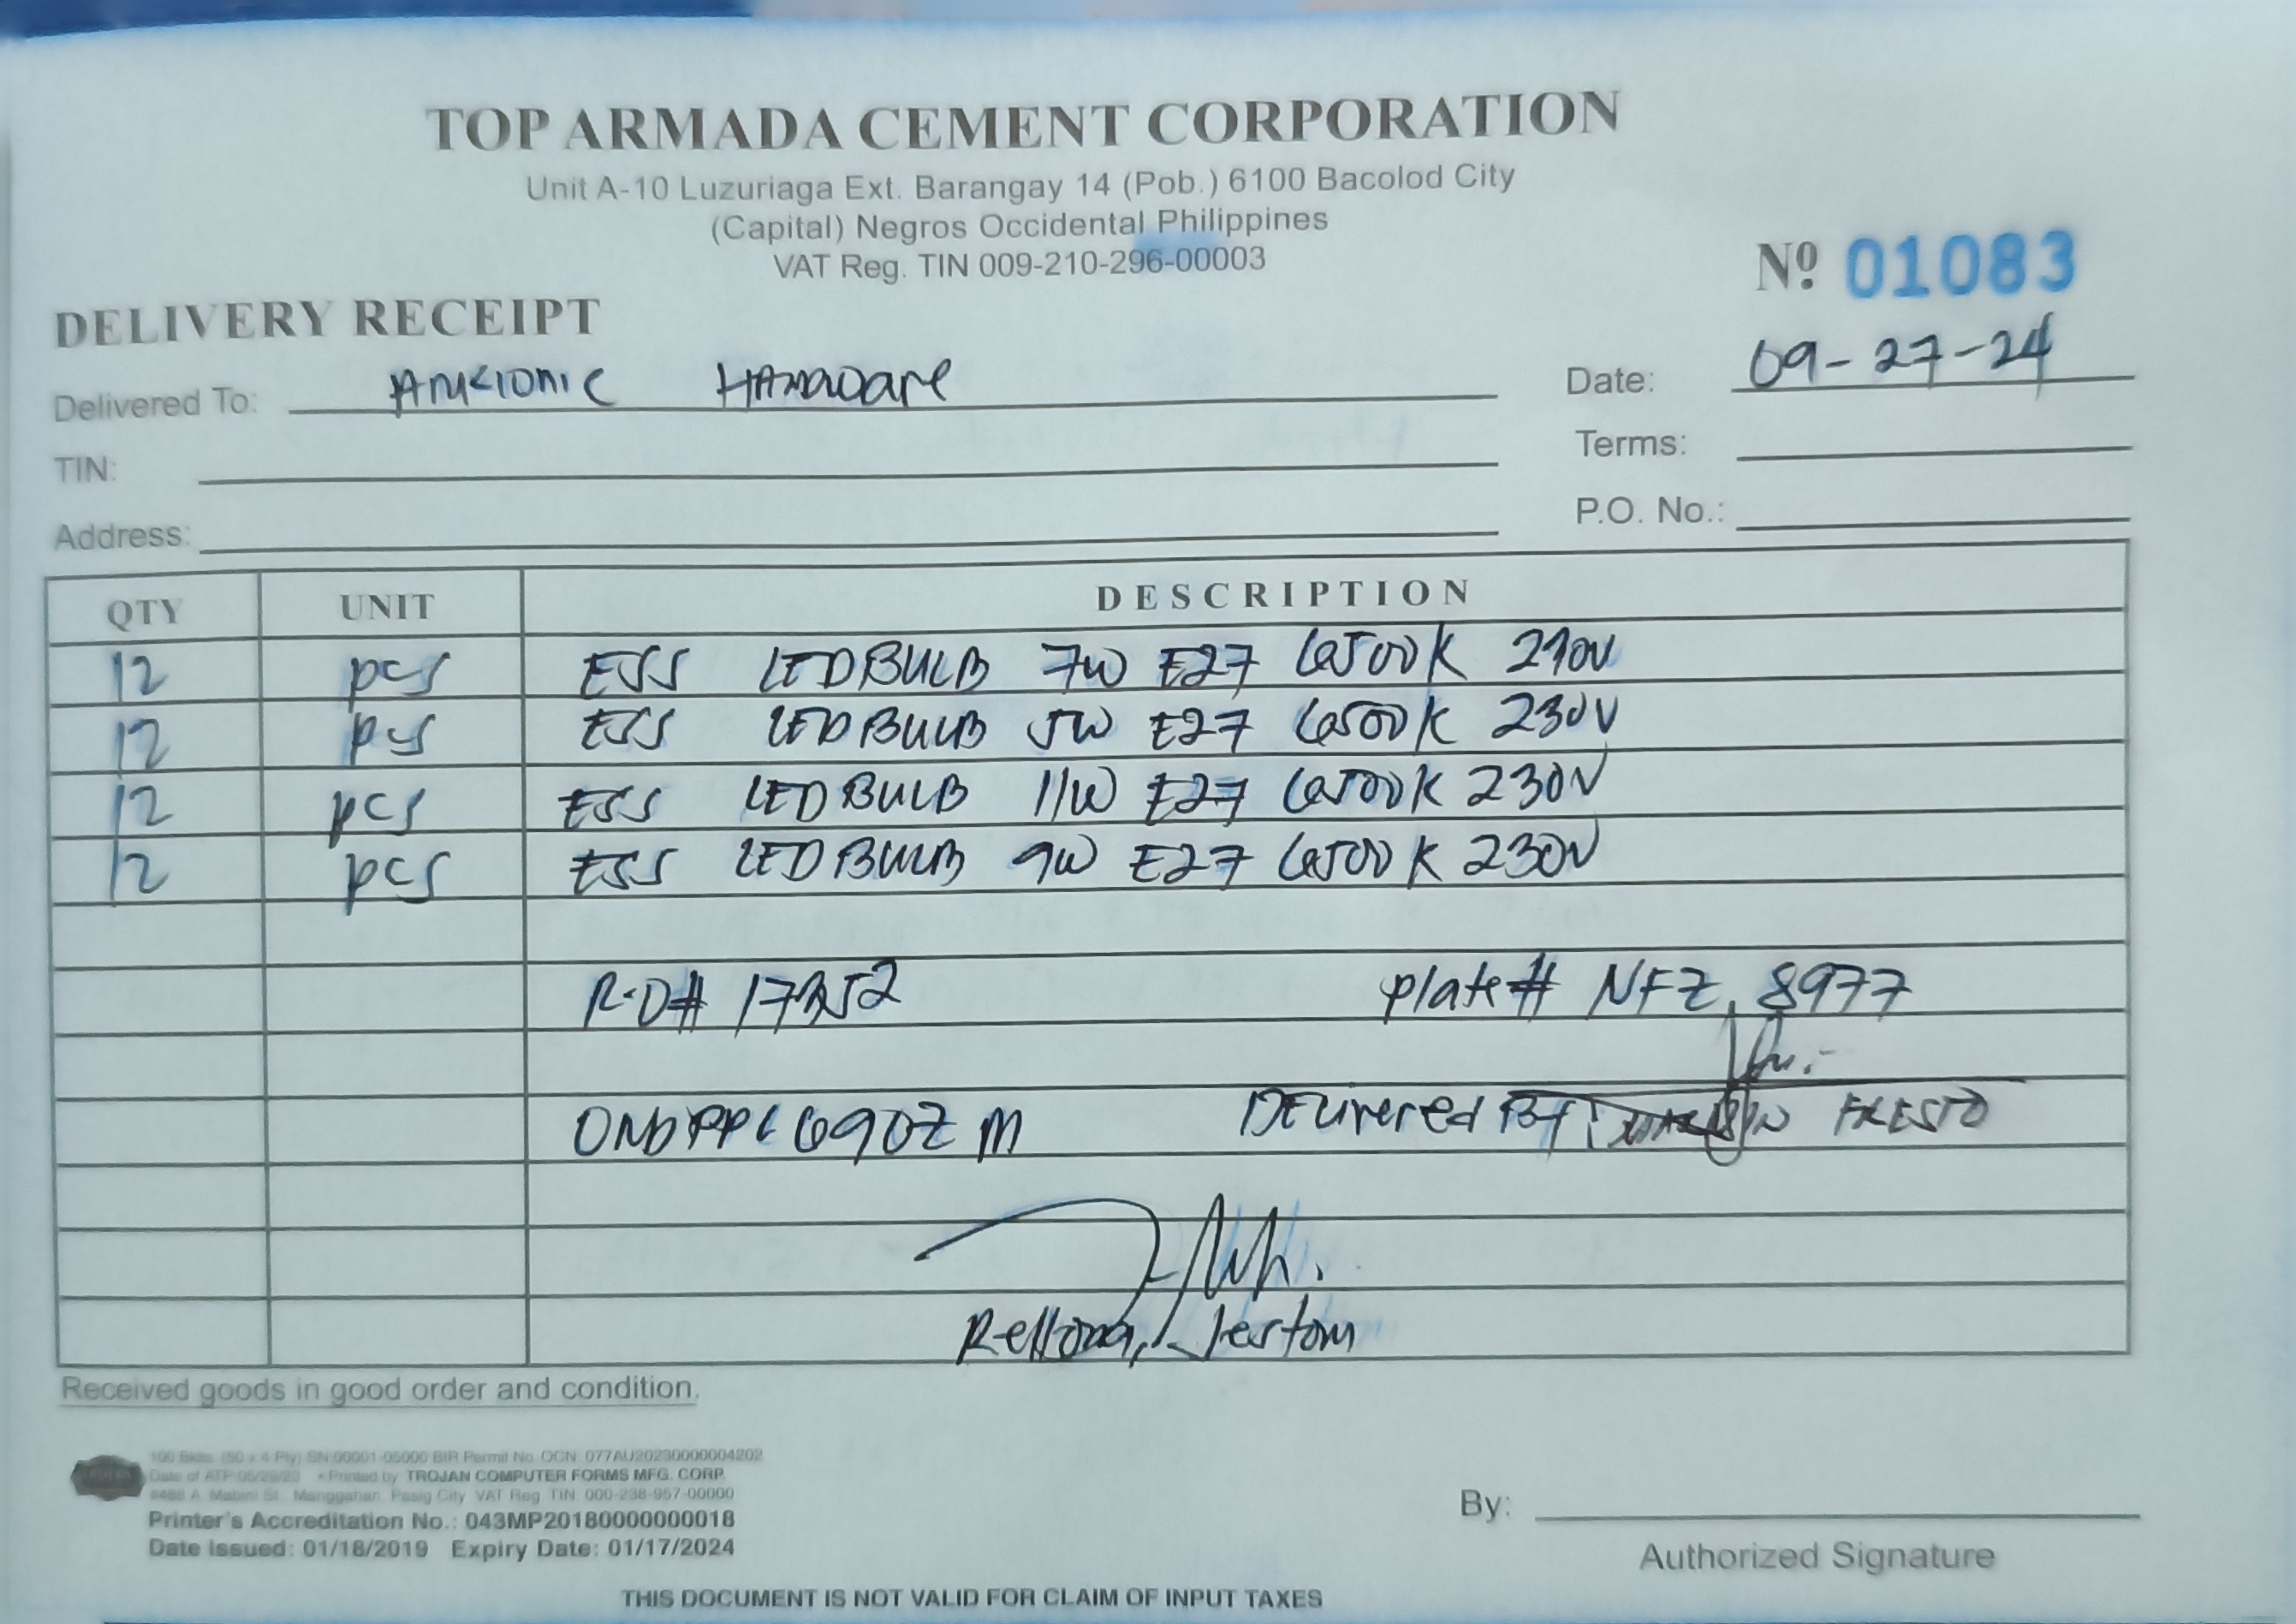 TOP ARMADA CEMENT CORPORATION
Unit A-10 Luzuriaga Ext. Barangay 14 (Pob.) 6100 Bacolod City
(Capital) Negros Occidental Philippines
VAT Reg. TIN 009-210-296-00003
Nº 01083
DELIVERY RECEIPT
Delivered To: Hardware
Date: 09-27-24
TIN:
Terms:
Address:
P.O. No.:
QTY UNIT DESCRIPTION
12 pcs ESS LED BULB 7W E27 6500K
12 pcs ESS LED BULB 5W E27 6500K 230V
12 pcs ESS LED BULB 11W E27 6500K 230V
12 pcs ESS LED BULB 9W E27 6500K 230V
R-D# 17352 plate# NFZ 8977
Delivered By
Jestom
Received goods in good order and condition.
100 Bklts. (50 x 4 Ply) SN:00001-05000 BIR Permit No. OCN: 077AU20230000004202
Date of ATP:05/29/23 • Printed by: TROJAN COMPUTER FORMS MFG. CORP.
#488 A. Mabini St., Manggahan, Pasig City VAT Reg. TIN: 000-238-957-00000
Printer's Accreditation No.: 043MP20180000000018
Date Issued: 01/18/2019 Expiry Date: 01/17/2024
By:
Authorized Signature
THIS DOCUMENT IS NOT VALID FOR CLAIM OF INPUT TAXES